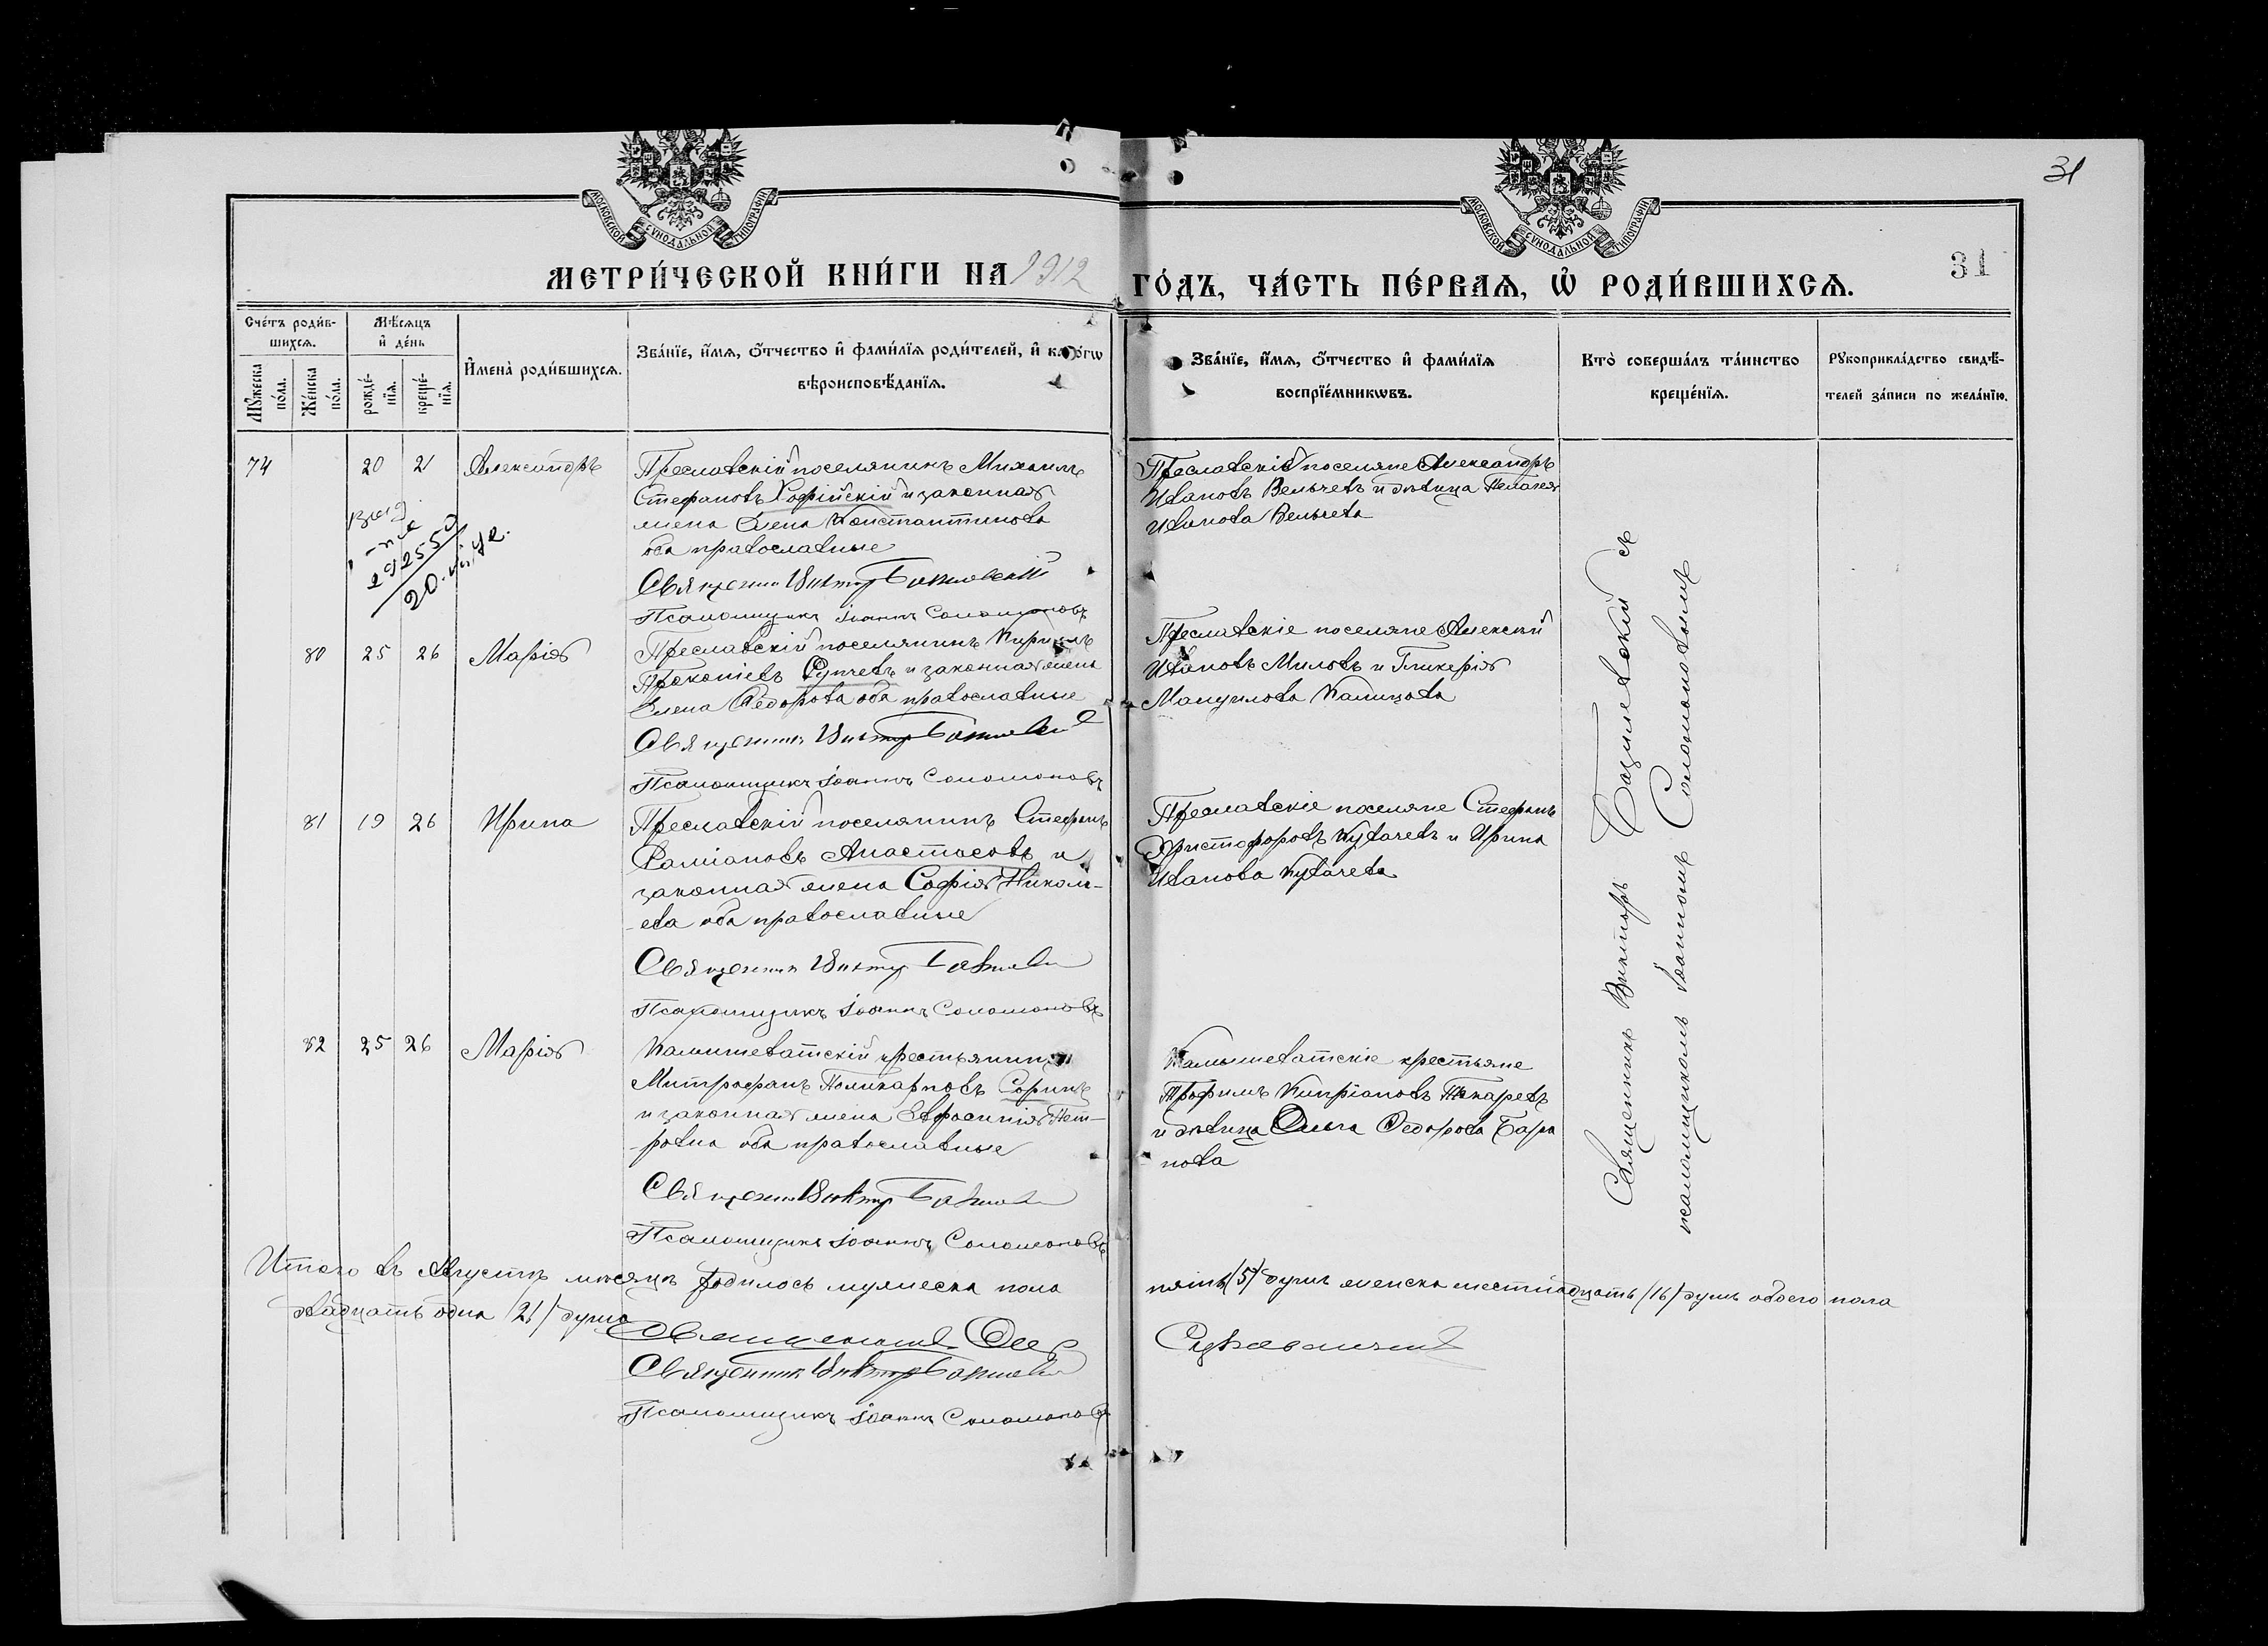 31
МОСКОВСКОЙ СѴНОДАЛЬНОЙ ТИПОГРАФІИ
МОСКОВСКОЙ СѴНОДАЛЬНОЙ ТИПОГРАФІИ
МЕТРИ́ЧЕСКОЙ КНИ́ГИ НА 1912
ГО́ДЪ, ЧА́СТЬ ПЕ́РВАѦ, Ѽ РОДИ́ВШИХСѦ.
31
Сче́тъ роди́в-
шихсѧ.
Мꙋ́жеска по́ла.
Же́нска по́ла.
Мѣ́сѧцъ и҆ де́нь
рожде́-нїѧ.
креще́-нїѧ.
И҆мена̀ роди́вшихсѧ.
Зва́нїе, и҆́мѧ, ѻ҆́тчество и҆ фами́лїѧ роди́телей, и҆ како́гѡ
вѣроисповѣ́данїѧ.
Зва́нїе, и҆́мѧ, ѻ҆́тчество и҆ фами́лїѧ
воспрїе́мникѡвъ.
Кто̀ соверша́лъ та́инство
креще́нїѧ.
Рꙋкоприкла́дство свидѣ́-
телей за́писи по жела́нїю.
74 20 21 Александръ
Преславскій поселянинъ Михаилъ
Стефановъ Софійскій и законная
жена Елена Константинова
оба православные
Священникъ Викторъ Базилевскій
Псаломщикъ Іоаннъ Соломоновъ
Преславскіе поселяне Александръ
Ивановъ Вельчевъ и дѣвица Пелагея
Иванова Вельчева
80 25 26 Марія
Преславскій поселянинъ Кириллъ
Прокопіевъ Сунчевъ и законная жена
Елена Ѳедорова оба православные
Священникъ Викторъ Базилевскій
Псаломщикъ Іоаннъ Соломоновъ
Преславскіе поселяне Алексѣй
Ивановъ Миловъ и Гликерія
Мануилова Калицова
81 19 26 Ирина
Преславскій поселянинъ Стефанъ
Даміановъ Анастасовъ и
законная жена Софія Никола-
ева оба православные
Священникъ Викторъ Базилевскій
Псаломщикъ Іоаннъ Соломоновъ
Преславскіе поселяне Стефанъ
Христофоровъ Кувачевъ и Ирина
Иванова Кувачева
82 25 26 Марія
Камышеватскій крестьянинъ
Митрофанъ Поликарповъ Соринъ
и законная жена Евфросинія Пет-
рова оба православные
Священникъ Викторъ Базилевскій
Псаломщикъ Іоаннъ Соломоновъ
Камышеватскіе крестьяне
Трофимъ Кипріановъ Токаревъ
и дѣвица Ольга Ѳедорова Бара
нова
Священникъ Викторъ Базилевскій съ
псаломщикомъ Іоанномъ Соломоновымъ
Итого въ Августѣ мѣсяцѣ родилось мужеска пола
пять (5) душъ женска шестнадцать (16) душъ обоего пола
двадцать одна (21) душа
Священникъ Викторъ Базилевскій
Псаломщикъ Іоаннъ Соломоновъ